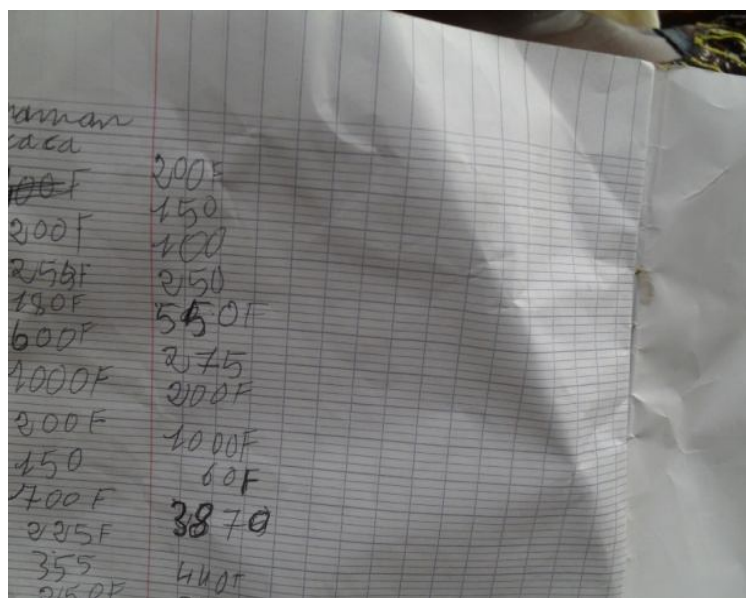 maman
caca
200F
180F
600F
1000F
200F
150
700F
225F
355
250F
200F
150
100
250
550F
275
200F
1000F
60F
3870